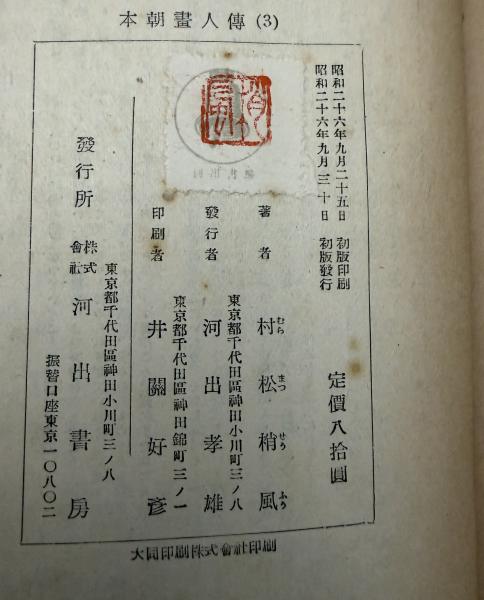 本朝畫人傳 (3)
昭和二十六年九月二十五日 初版印刷
昭和二十六年九月三十日 初版發行
定價八拾圓
著者 村松梢風
むら まつ せう ふう
發行者 東京都千代田區神田小川町三ノ八
河出孝雄
印刷者 東京都千代田區神田錦町三ノ一
井關好彥
發行所 東京都千代田區神田小川町三ノ八
株式會社 河出書房
振替口座東京一〇八〇二
大同印刷株式會社印刷
梢風